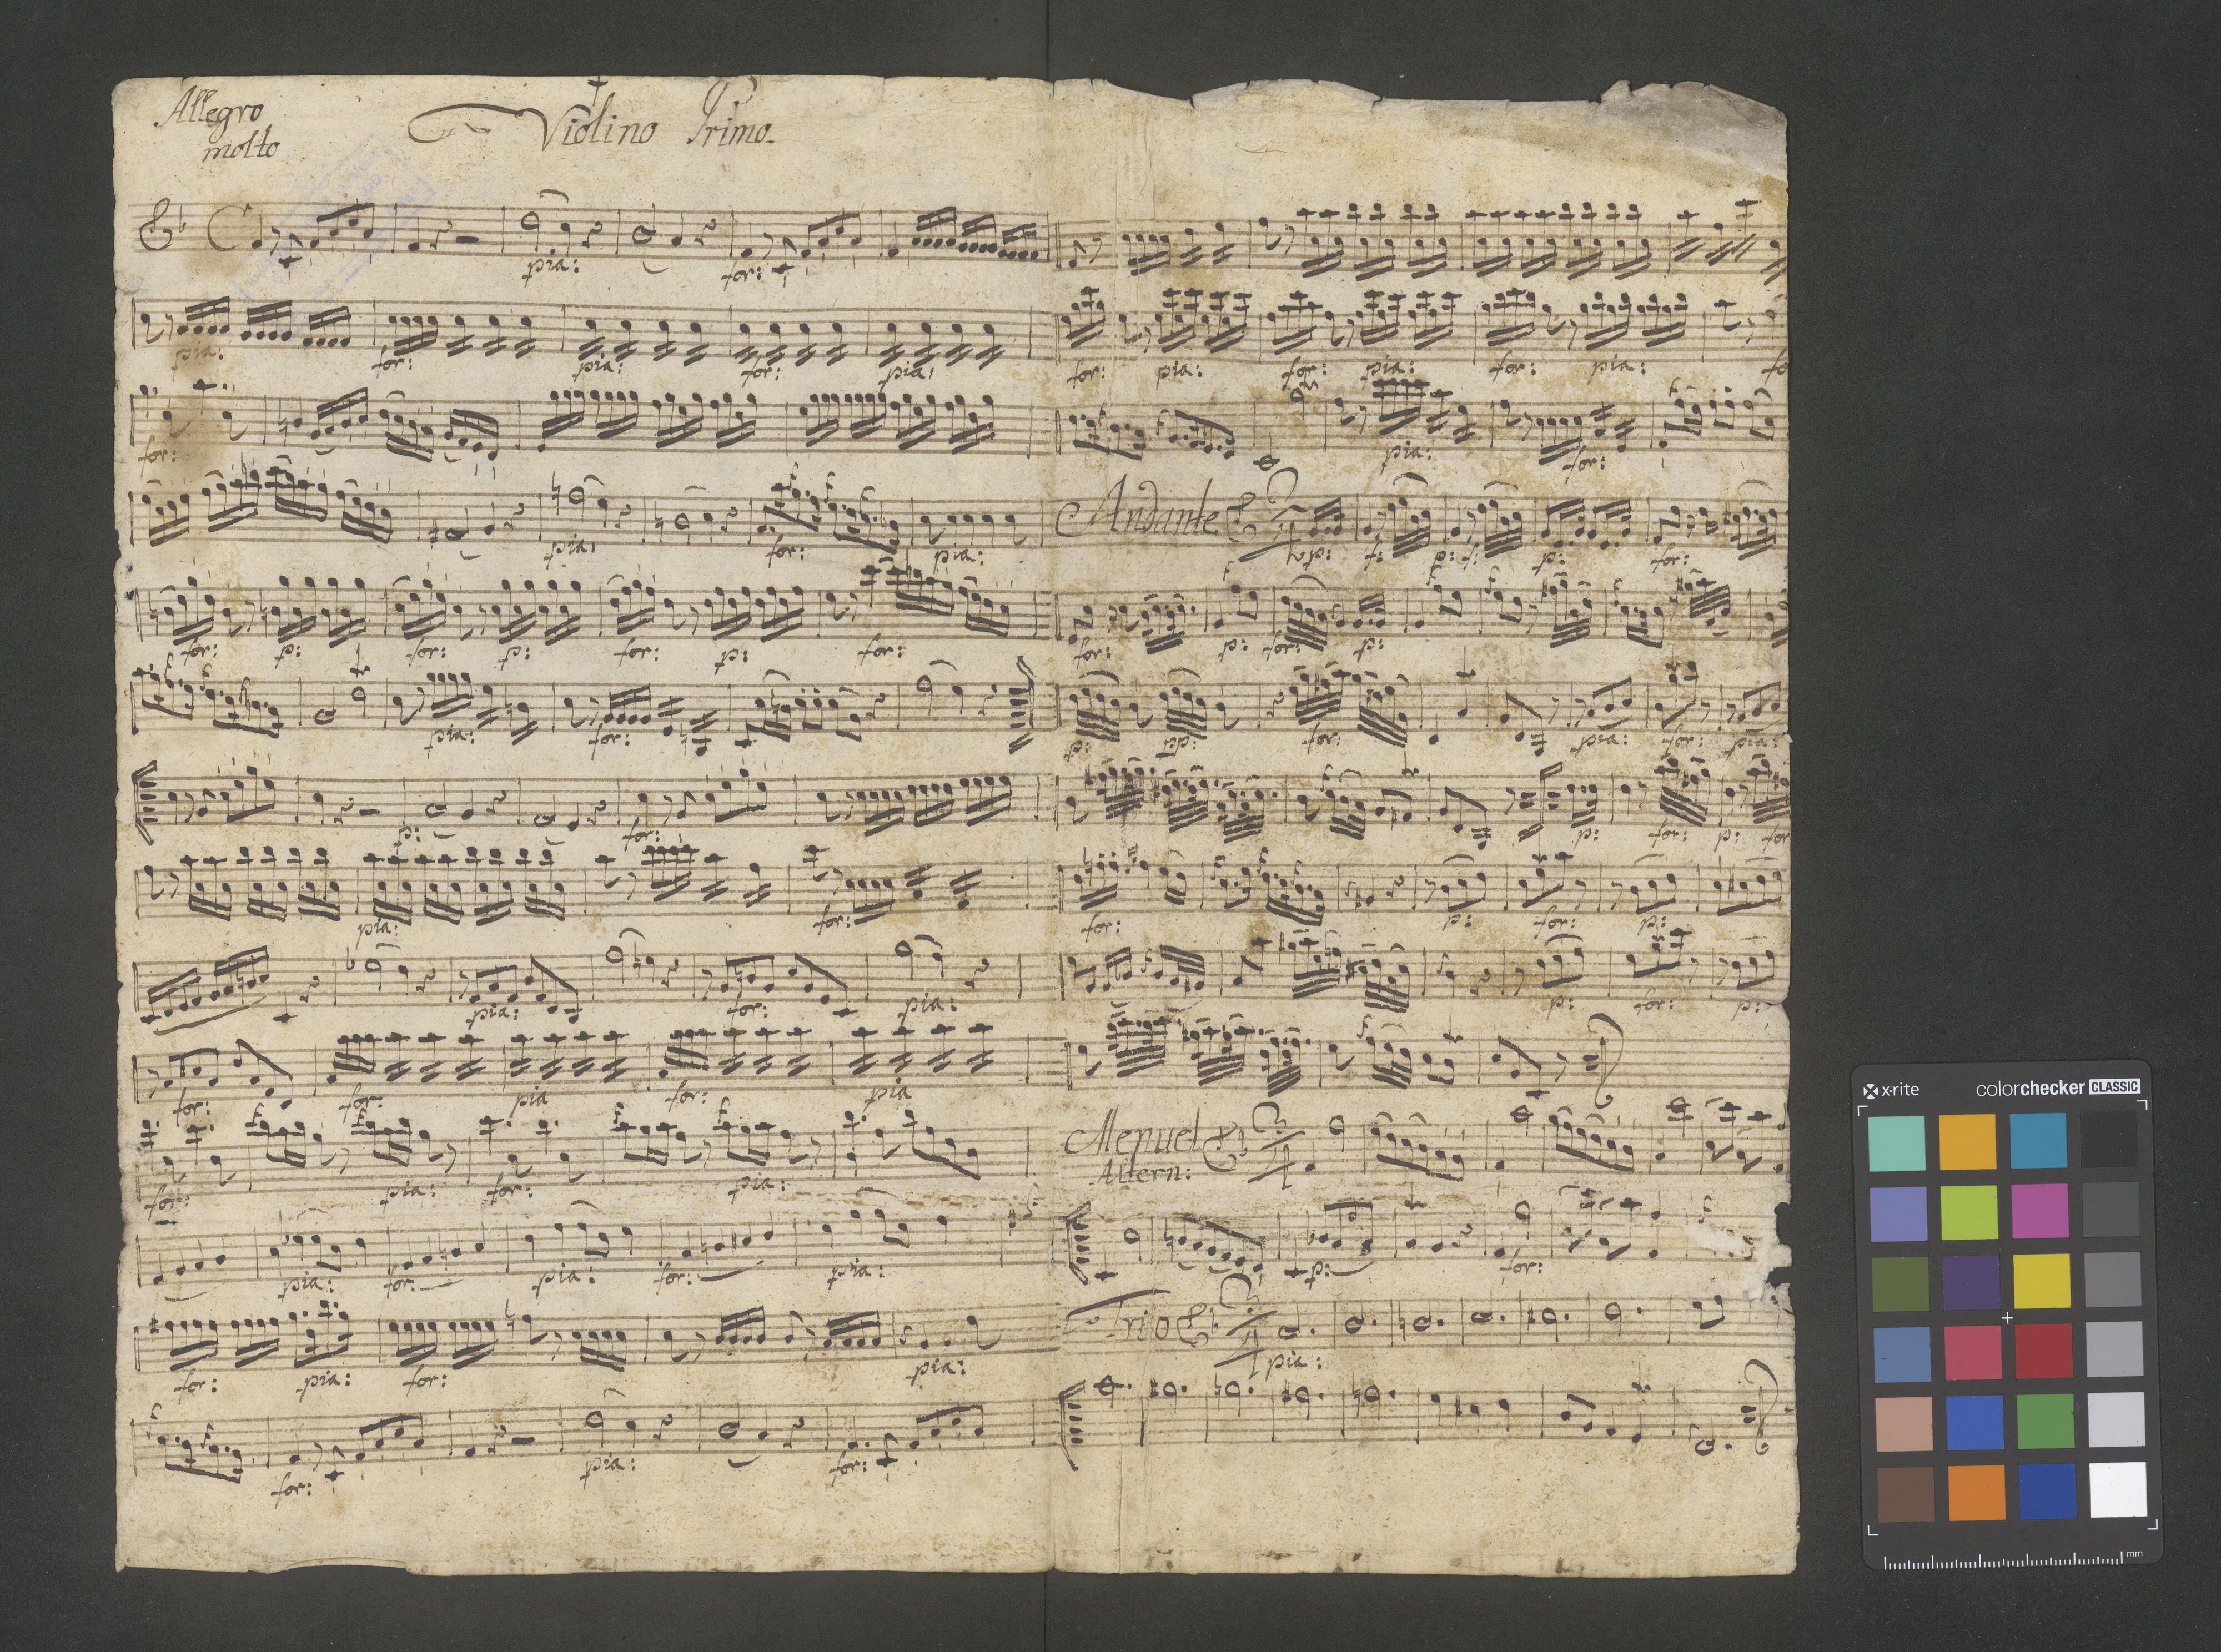 Allegro
molto
Violino Primo.
pia: for:
pia: for: pia: for: pia:
for:
pia: for: pia:
for: p: for: p: for: p: for:
pia: for:
p: for:
pia: for:
pia: for: pia:
for: for: pia for: pia
for: pia: for: pia:
pia: for: pia: for: pia:
for: pia: for: pia:
for: pia: for:
for: pia: for: pia: for: pia: fo
pia: for:
Andante
p: f: p: f: p: for:
for: p: for: p:
p: p: for: pia: for: pia:
p: for: p: for
for: p: for: p:
p: for: p:
Menuet
Altern:
p: for:
Trio
pia:
x·rite colorchecker CLASSIC
mm